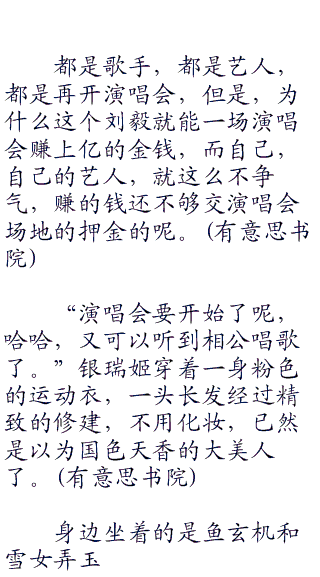 都是歌手，都是艺人，
都是再开演唱会，但是，为
什么这个刘毅就能一场演唱
会赚上亿的金钱，而自己，
自己的艺人，就这么不争
气，赚的钱还不够交演唱会
场地的押金的呢。(有意思书
院)
“演唱会要开始了呢，
哈哈，又可以听到相公唱歌
了。”银瑞姬穿着一身粉色
的运动衣，一头长发经过精
致的修建，不用化妆，已然
是以为国色天香的大美人
了。(有意思书院)
身边坐着的是鱼玄机和
雪女弄玉